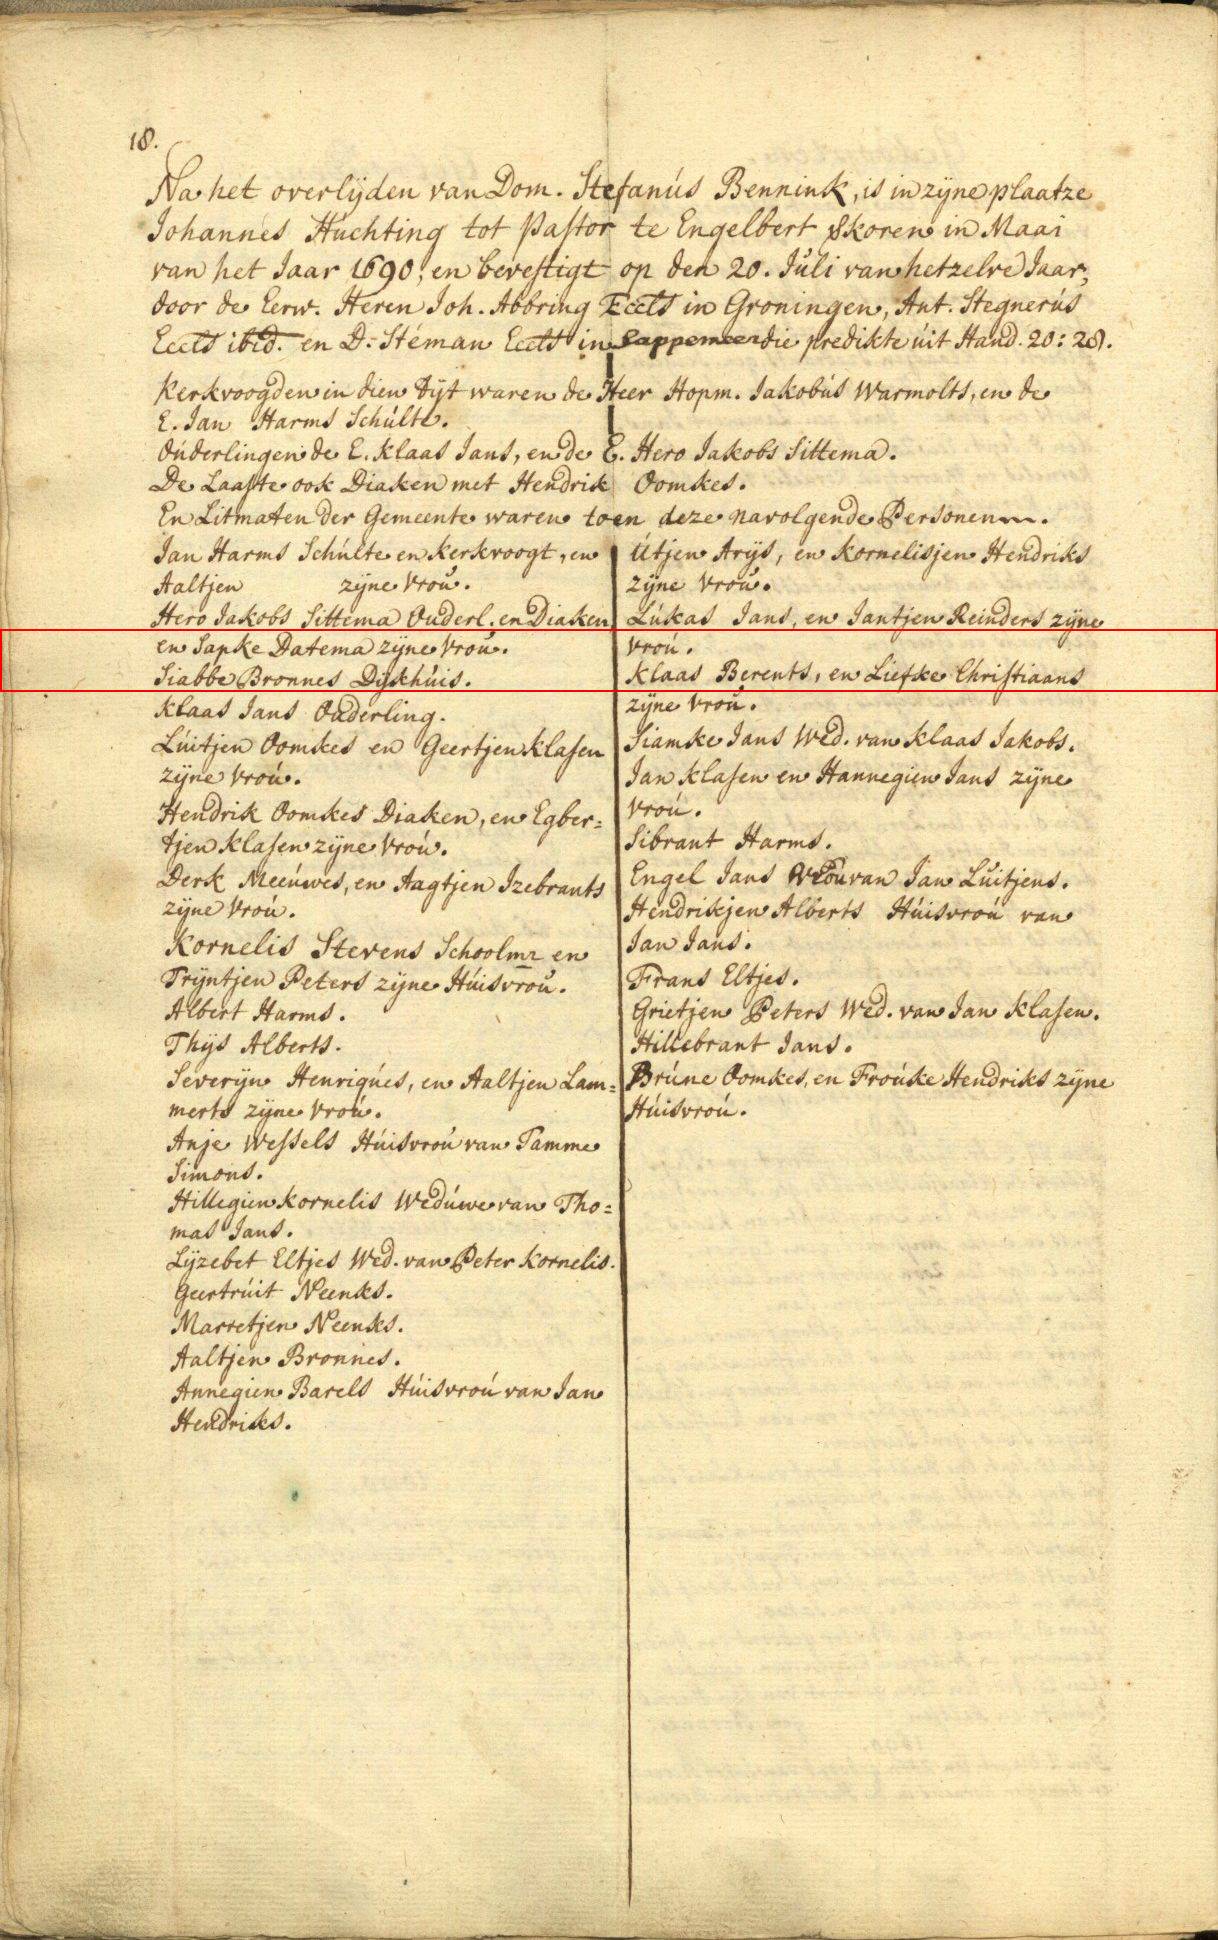 18.
Na het overlijden van Dom. Stefanús Bennink, is in zyne plaatze
Johannes Húchting tot Pastor te Engelbert gkoren in Maai
van het Jaar 1690, en bevestigt op den 20. Júli van hetzelve Jaar,
door de Eerw. Heren Joh. Abbring Eccts in Groningen, Ant. Stegnerús
Eccts ibid. en D. Stéman Eccts in Sappemeer die predikte úit Hand. 20: 28.
Kerkvoogden in dien tijt waren de Heer Hopm. Jakobús Warmolts, en de
E. Jan Harms Schúlte.
Oúderlingen de E. Klaas Jans, en de E. Hero Jakobs Sittema.
De Laaste ook Diaken met Hendrik Oomkes.
En Litmaten der Gemeente waren toen deze navolgende Personen.
Jan Harms Schúlte en Kerkvoogt, en
Aaltjen zyne Vroú.
Hero Jakobs Sittema Ouderl. en Diaken
en Sapke Datema zyne Vroú.
Siabbe Bronnes Dijkhúis.
Klaas Jans Ouderling.
Lúitjen Oomkes en Geertjen Klasen
zyne Vroú.
Hendrik Oomkes Diaken, en Egber=
tjen Klasen zyne Vroú.
Derk Meeúwes, en Aagtjen Izebrants
zyne Vroú.
Kornelis Stevens Schoolmr en
Tryntjen Peters zyne Húisvroú.
Albert Harms.
Thijs Alberts.
Severyn Henriqúes, en Aaltjen Lam=
merts zyne Vroú.
Anje Wessels Húisvroú van Tamme
Simons.
Hillegien Kornelis Wedúwe van Tho=
mas Jans.
Lyzebet Eltjes Wed. van Peter Kornelis.
Geertrúit Neenks.
Marretjen Neenks.
Aaltjen Bronnes.
Annegien Barels Húisvroú van Jan
Hendriks.
Útjen Arijs, en Kornelisjen Hendriks
zyne Vroú.
Lúkas Jans, en Jantjen Reinders zyne
Vroú.
Klaas Berents, en Liefke Christiaans
zyne Vroú.
Siamke Jans Wed. van Klaas Jakobs.
Jan Klasen en Hannegien Jans zyne
Vroú.
Sibrant Harms.
Engel Jans Vroú van Jan Lúitjens.
Hendrikjen Alberts Húisvroú van
Jan Jans.
Frans Eltjes.
Grietjen Peters Wed. van Jan Klasen.
Hillebrant Jans.
Brúne Oomkes, en Froúke Hendriks zyne
Húisvroú.